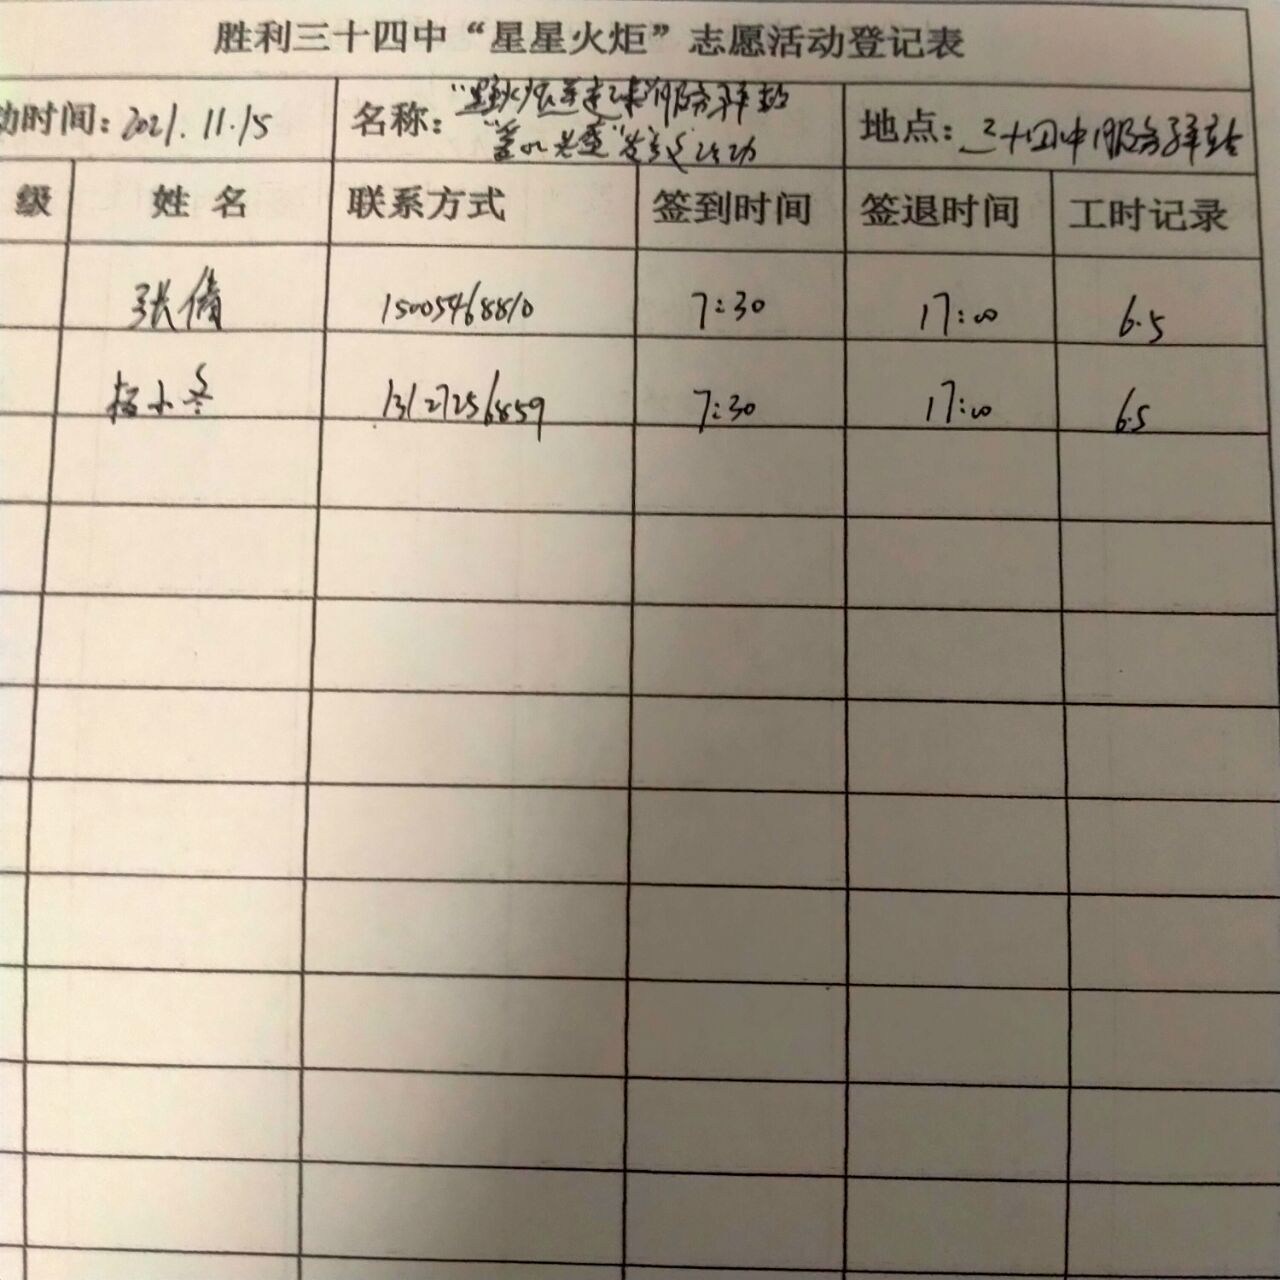 胜利三十四中“星星火炬”志愿活动登记表
动时间：2021.11.15 名称： 服务驿站 地点：三十四中服务驿站
活动
级 姓 名 联系方式 签到时间 签退时间 工时记录
张倩 15005468810 7:30 17:00 6.5
杨小冬 13127256859 7:30 17:00 6.5